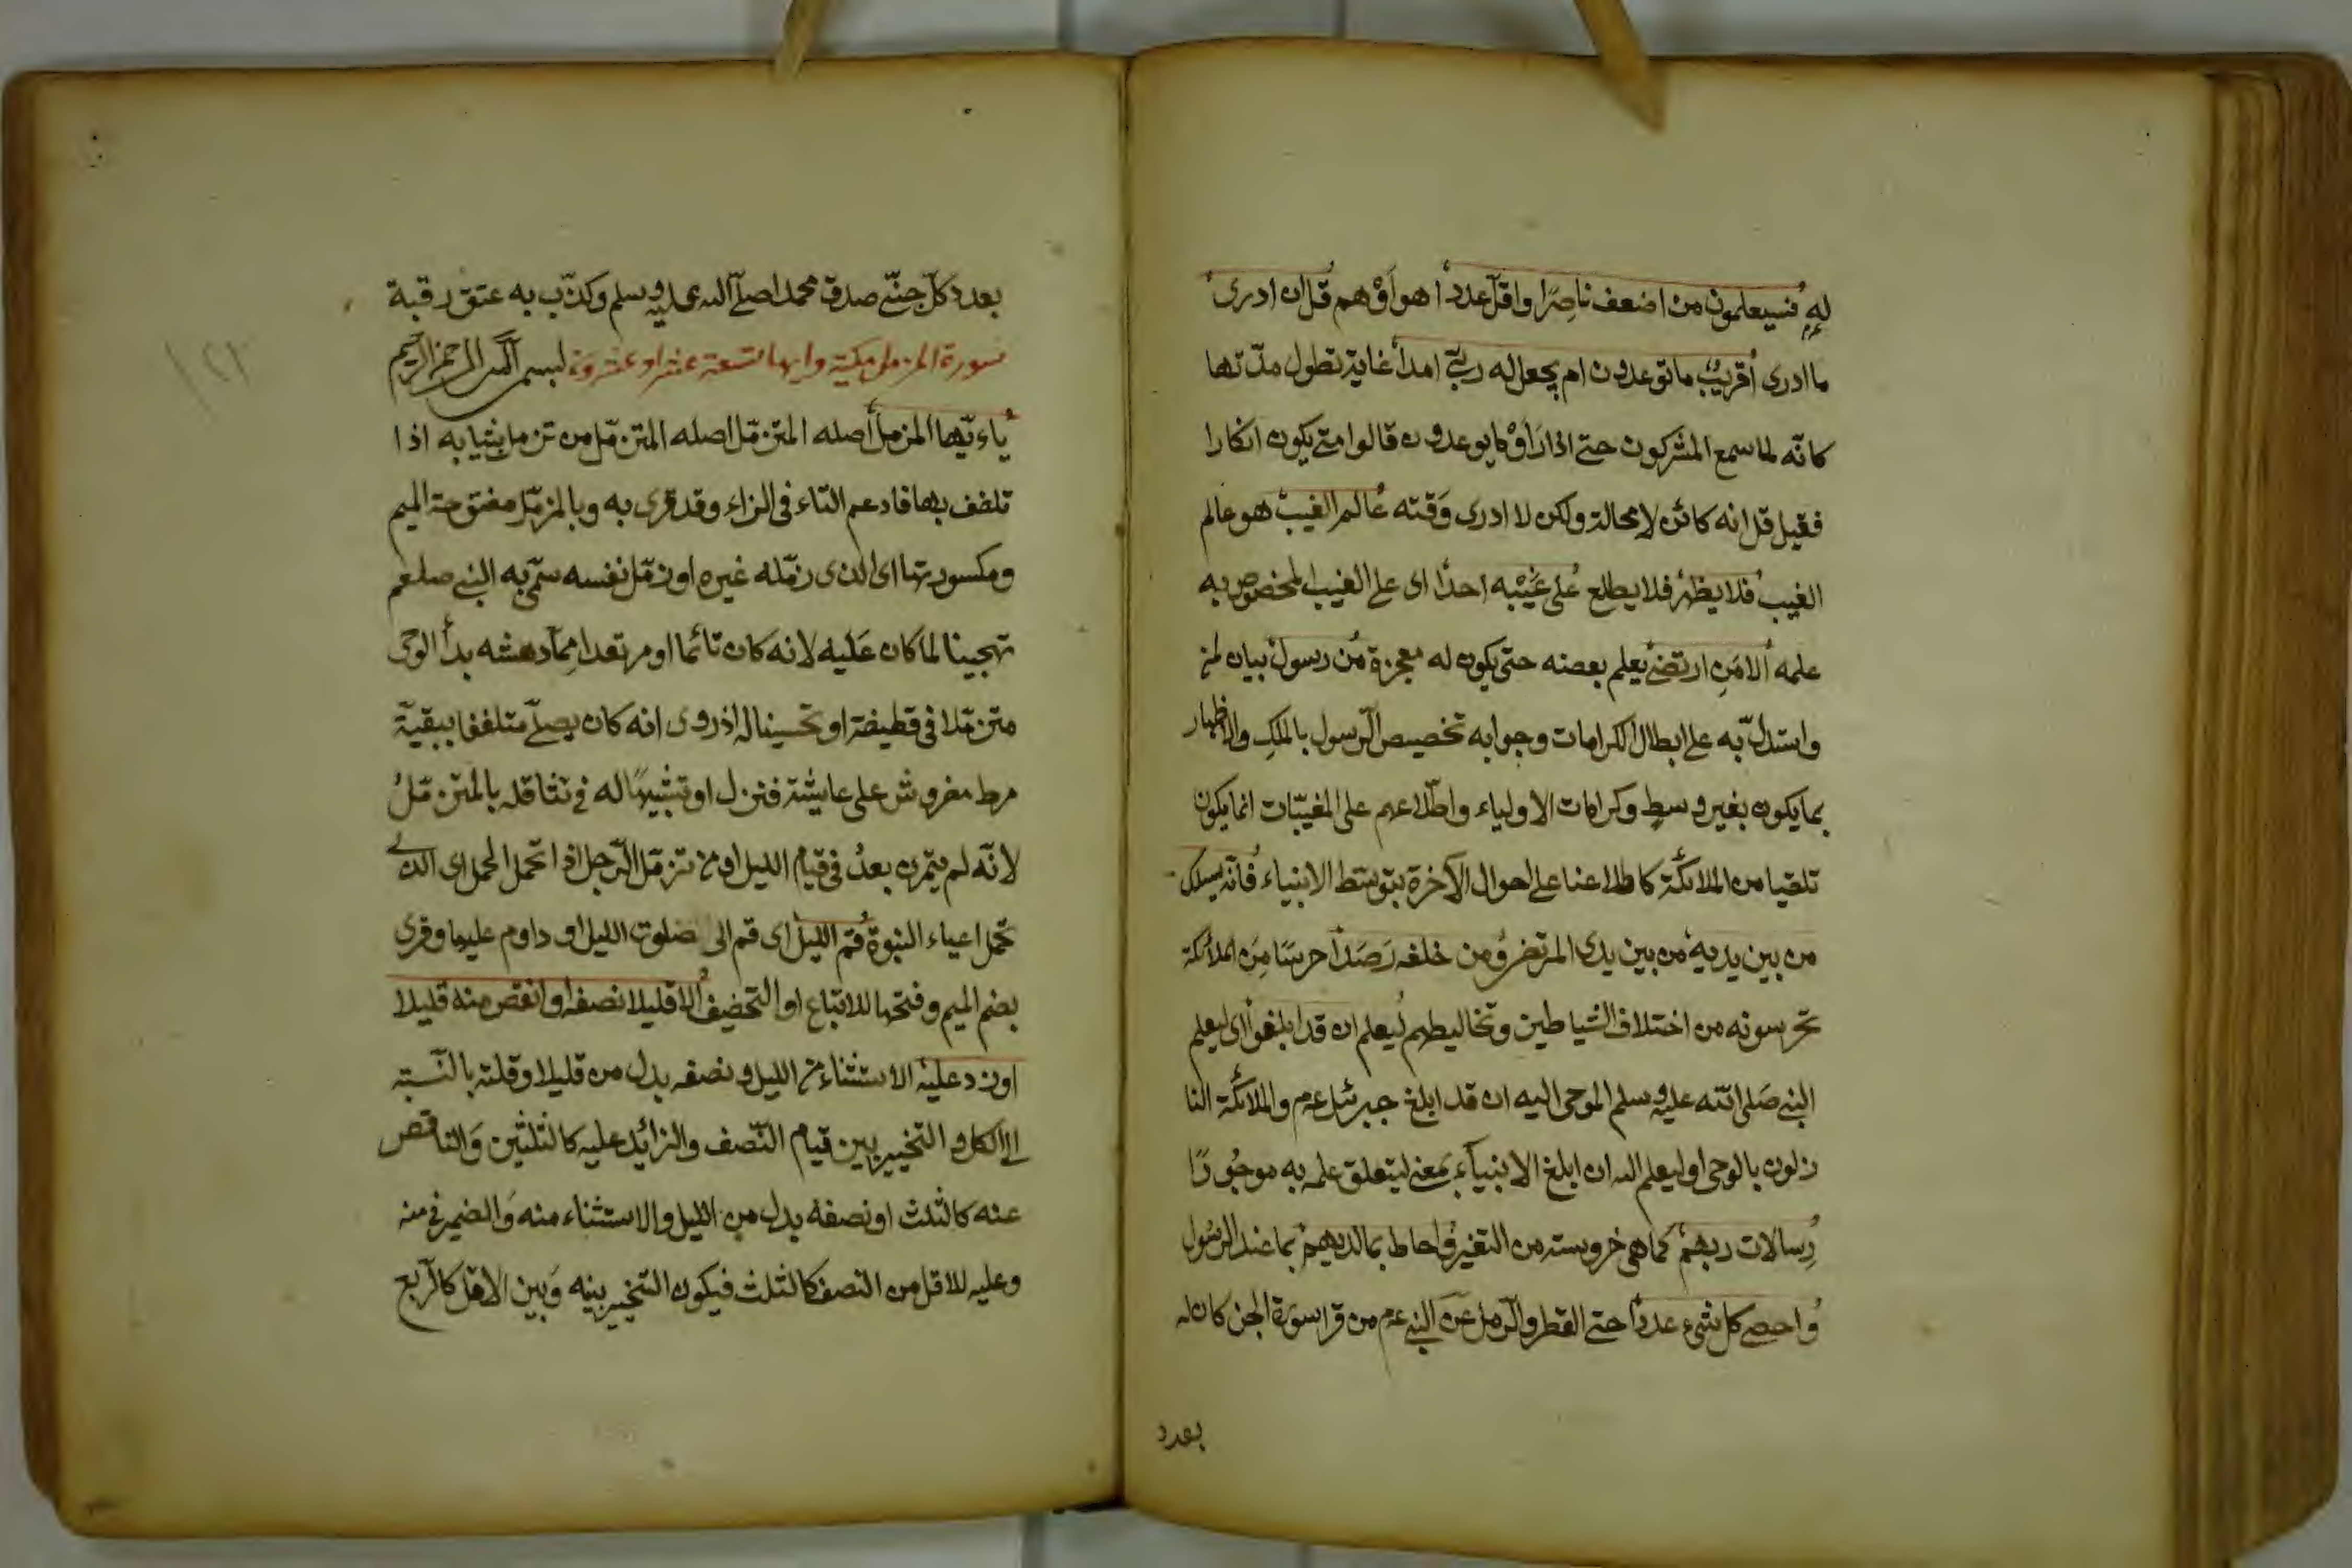 له فسيعلمون من اضعف ناصرا واقل عددا اهو اوهم قل ان ادرى
ما ادرى اقريب ما توعدون ام يجعل له ربّى امدا غاية تطول مدّتها
كانّه لما سمع المشركون حتى اذا راوْ ما يوعدون قالوا متى يكون انكارا
فقيل قل انه كائن لا محالة ولكن لا ادرى وَقته عالم الغيب هو عالم
الغيب فلا يظهر فلا يطلع على غيْبه احدا اى على الغيب المخصوص به
علمه الا مَنِ ارتضى يعلم بعضه حتى يكون له معجزة من رسول بيان لمن
واستدلّ به على ابطال الكرامات وجوابه تخصيص الرّسول بالملكِ والاظهار
بما يكون بغير وسطٍ وكرامات الاولياء واطّلاعهم على المغيّبات انما يكون
تلقيا من الملائكة كاطلاعنا على احوال الآخرة بتوسّط الانبياء فانّه يسلك
من بين يديه من بين يدى المرتضى ومن خلفه رَصَدا حرسًا مِنَ الملائكة
تحرسونه من اختلاف الشياطين وتخاليطهم ليعلم ان قد ابلغوا اى ليعلم
النبى صَلى الله عليه وسلم الموحى اليه ان قد ابلغ جبرئل عم والملائكة النا
زلون بالوحى او ليعلم الله ان ابلغ الانبيآء بمعنى ليتعلق علمه به موجُودًا
رِسالات ربهم كما هى خروسته من التغير واحاط بما لديهم بما عند الرسُول
واحصى كل شىء عددا حتى القطر والرّمل عن النبى عم من قرا سورة الجن كان له
بعدد
بعدد كلّ جنّى صدق محمدا صلّى الله عليه وسلم وكذّب به عتق رقبة
سورة المزمل مكية وايها تسعة عشر او عشرون بسم الله الرحمن الرحيم
ياءيّها المزمل أصله المتزمّل اصله المتزمّل من تزمل بثيابه اذا
تلفف بها فادعم التاء فى الزاء وقد قرى به وبالمزمّل مفتوحة الميم
ومكسورتها اى الذى زمّله غيره او زمّل نفسه سمّى به النبى صلعم
تهجينا لما كان عَليه لانه كان نائما او مرتعدا مِمّا دهشه بدأ الوحى
متزمّلا فى قطيفة او تحسينا له اذ روى انه كان يصلّى متلففا ببقيّة
مرط مفروش على عايشة فنزل او تشبيهًا له فى تثاقله بالمتزمّل
لانّه لم يتمرن بعدُ فى قيام الليل او من تزمّل الرّجل اذا تحمل الحمل اى الذى
تحمل اعباء النبوة قم الليل اى قم الى صلوت الليل او داوم عليها وقرى
بضم الميم وفتحها للاتباع او التخفيف الا قليلا نصفه او انقص منه قليلا
او زد عليه الاستثناء من الليل ونصفه بدل من قليلا وقلته بالنّسبته
الى الكل و التخيير بين قيام النّصف والزائد عليه كالثلثين وَالناقص
عنه كالثلث او نصفه بدل من الليل والاستثناء منه وَالضمير فى منه
وعليه للاقل من النصف كالثلث فيكون التخيير بينه وَبين الاقل كالرّبع